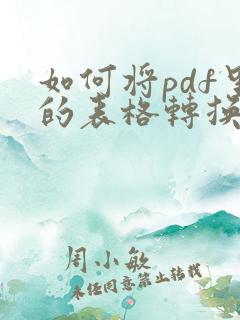 如何将pdf里
的表格轉换
周小敏
未经同意禁止转载